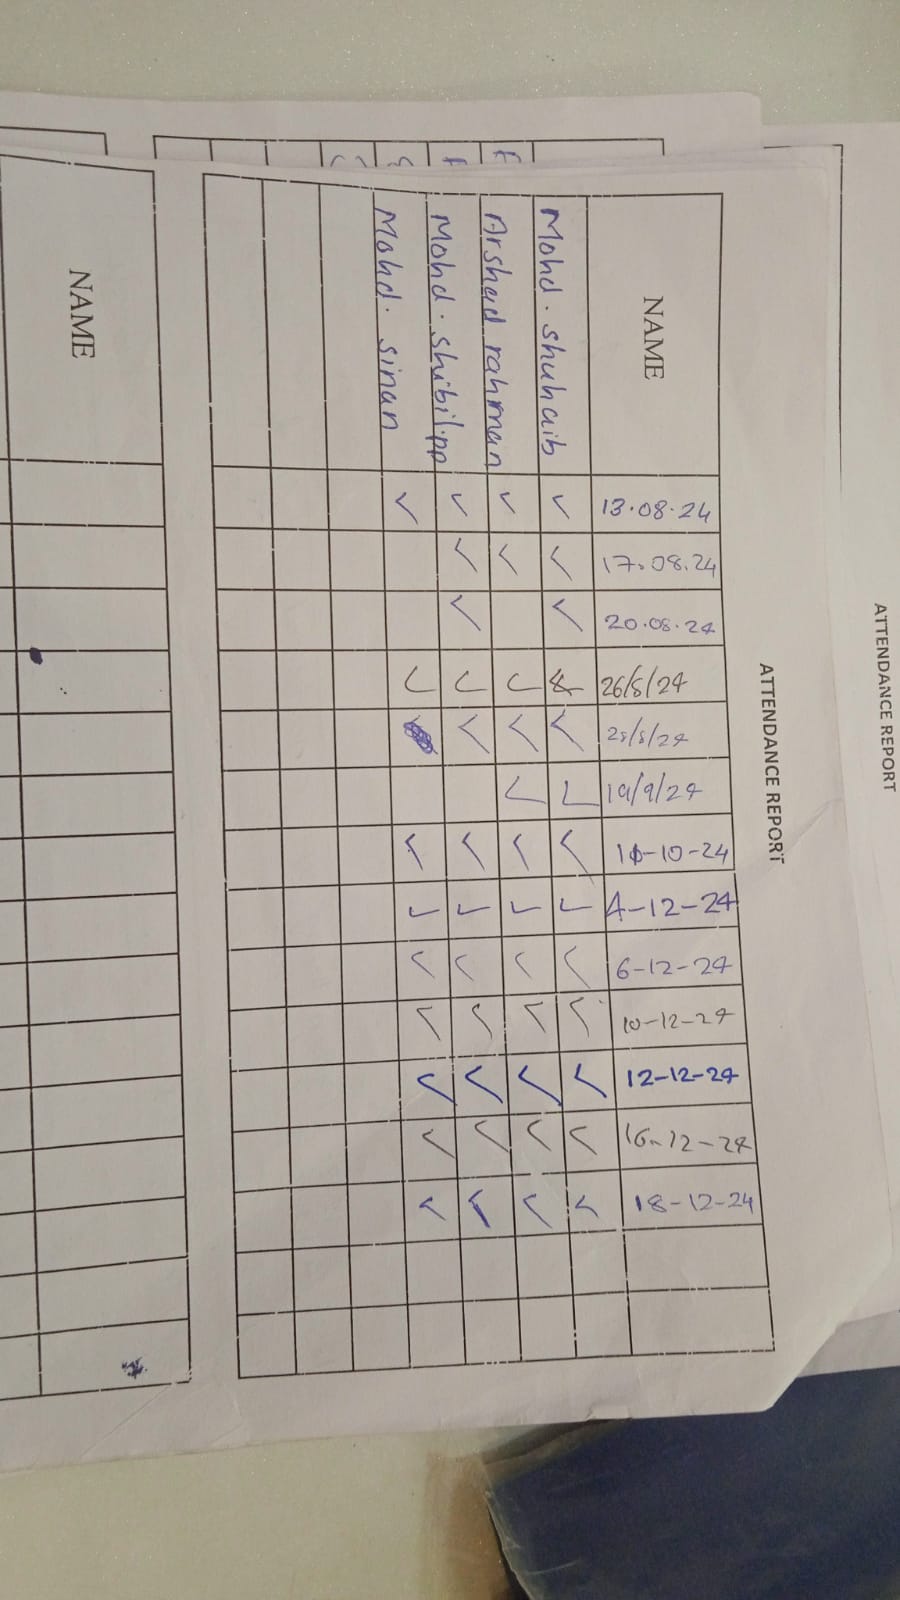 ATTENDANCE REPORT
ATTENDANCE REPORT
NAME 13.08.24 17.08.24 20.08.24 26/8/24 28/8/24 19/9/24 16-10-24 4-12-24 6-12-24 10-12-24 12-12-24 16-12-24 18-12-24
Mohd. shuhaib ✓ ✓ ✓ ✓ ✓ ✓ ✓ ✓ ✓ ✓ ✓ ✓ ✓
Arshad rahman ✓ ✓ ✓ ✓ ✓ ✓ ✓ ✓ ✓ ✓ ✓
Mohd. shibili.pp ✓ ✓ ✓ ✓ ✓ ✓ ✓ ✓ ✓ ✓ ✓ ✓
Mohd. sinan ✓ ✓ ✓ ✓ ✓ ✓ ✓ ✓ ✓
NAME